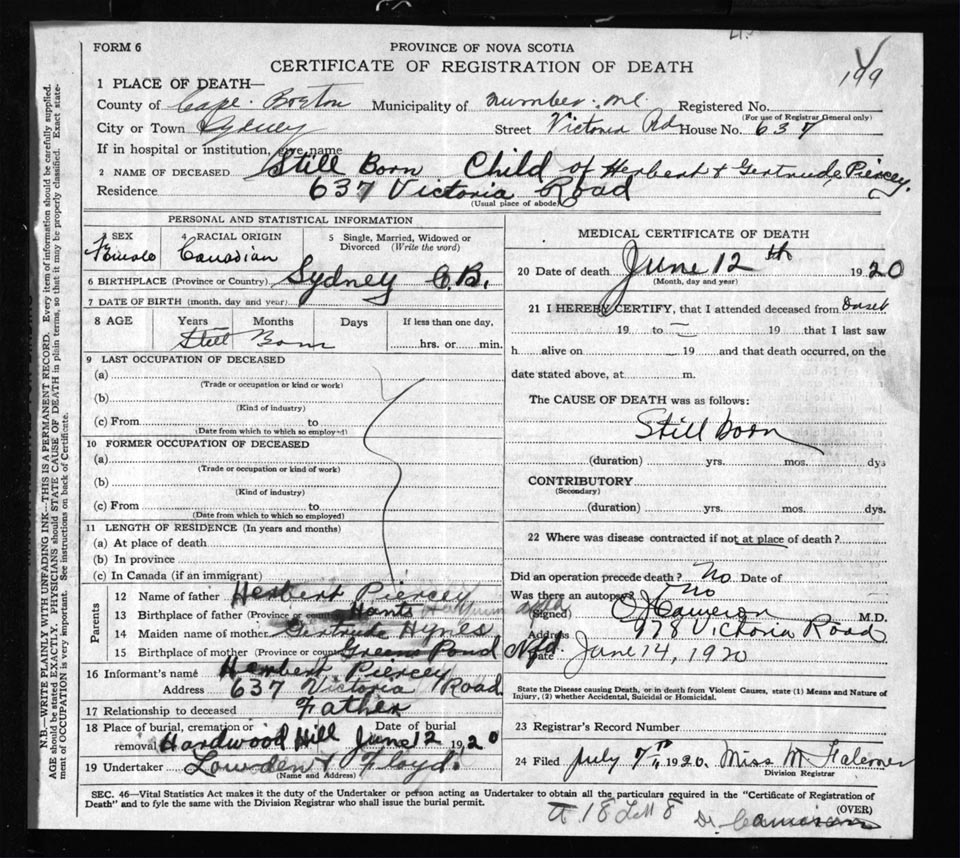 FORM 6
PROVINCE OF NOVA SCOTIA
CERTIFICATE OF REGISTRATION OF DEATH
199
1 PLACE OF DEATH—
County of Cape Breton Municipality of Registered No.
(For use of Registrar General only)
City or Town Sydney Street Victoria Rd House No. 637
If in hospital or institution, give name
2 NAME OF DECEASED Still Born Child of Herbert & Gertrude Piercey,
Residence 637 Victoria Road
(Usual place of abode)
PERSONAL AND STATISTICAL INFORMATION
3 SEX Female
4 RACIAL ORIGIN Canadian
5 Single, Married, Widowed or Divorced (Write the word)
6 BIRTHPLACE (Province or Country) Sydney C.B.
7 DATE OF BIRTH (month, day and year)
8 AGE Years Months Days If less than one day,
Still Born hrs. or min.
9 LAST OCCUPATION OF DECEASED
(a)
(Trade or occupation or kind or work)
(b)
(Kind of industry)
(c) From to
(Date from which to which so employed)
10 FORMER OCCUPATION OF DECEASED
(a)
(Trade or occupation or kind of work)
(b)
(Kind of industry)
(c) From to
(Date from which to which so employed)
11 LENGTH OF RESIDENCE (In years and months)
(a) At place of death
(b) In province
(c) In Canada (if an immigrant)
Parents
12 Name of father Herbert Piercey
13 Birthplace of father (Province or country) Hants
14 Maiden name of mother Gertrude Hynes
15 Birthplace of mother (Province or country) Greens Pond Nfd.
16 Informant's name Herbert Piercey
Address 637 Victoria Road
17 Relationship to deceased Father
18 Place of burial, cremation or removal Hardwood Hill Date of burial June 12 1920
19 Undertaker Lowden & Floyd.
(Name and Address)
MEDICAL CERTIFICATE OF DEATH
20 Date of death June 12th 1920
(Month, day and year)
21 I HEREBY CERTIFY, that I attended deceased from
19 to — 19 that I last saw
h alive on 19 and that death occurred, on the
date stated above, at m.
The CAUSE OF DEATH was as follows:
Still Born
(duration) yrs. mos. dys
CONTRIBUTORY
(Secondary)
(duration) yrs. mos. dys.
22 Where was disease contracted if not at place of death?
Did an operation precede death? No Date of
Was there an autopsy? No
(Signed) O J Cameron M.D.
Address 978 Victoria Road
Date June 14, 1920
State the Disease causing Death, or in death from Violent Causes, state (1) Means and Nature of
Injury, (2) whether Accidental, Suicidal or Homicidal.
23 Registrar's Record Number
24 Filed July 7th 1920. Miss M.
Division Registrar
SEC. 46—Vital Statistics Act makes it the duty of the Undertaker or person acting as Undertaker to obtain all the particulars required in the "Certificate of Registration of
Death" and to fyle the same with the Division Registrar who shall issue the burial permit.
(OVER)
Dr Cameron
N.B.—WRITE PLAINLY WITH UNFADING INK—THIS IS A PERMANENT RECORD. Every item of information should be carefully supplied.
AGE should be stated EXACTLY. PHYSICIANS should STATE CAUSE OF DEATH in plain terms, so that it may be properly classified. Exact state-
ment of OCCUPATION is very important. See instructions on back of Certificate.